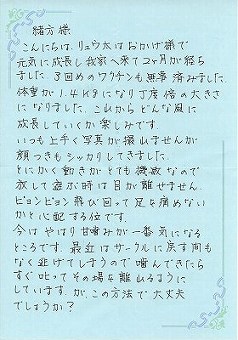 緒方様
こんにちは。リュウ太はおかげ様で
元気に成長し我家へ来て2ヶ月が経ち
ました。3回めのワクチンも無事済みました。
体重が1.4Kgになり丁度倍の大きさ
になりました。これからどんな風に
成長していくか楽しみです。
いつも上手く写真が撮れませんが
顔つきもシッカリしてきました。
とにかく動きがとても機敏なので
放して遊ぶ時は目が離せません。
ピョンピョン飛び回って足を痛めない
かと心配する位です。
今はやはり甘噛みが一番気になる
ところです。最近はサークルに戻す間も
なく逃げてしまうので噛んできたら
すぐ叱ってその場を離れるように
していますが、この方法で大丈夫
でしょうか?